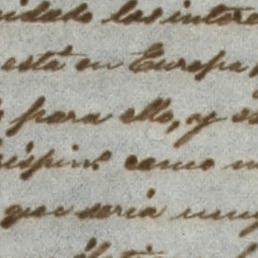 cuidado los intere
está en Europa
para ello, y es
como
que sería muy